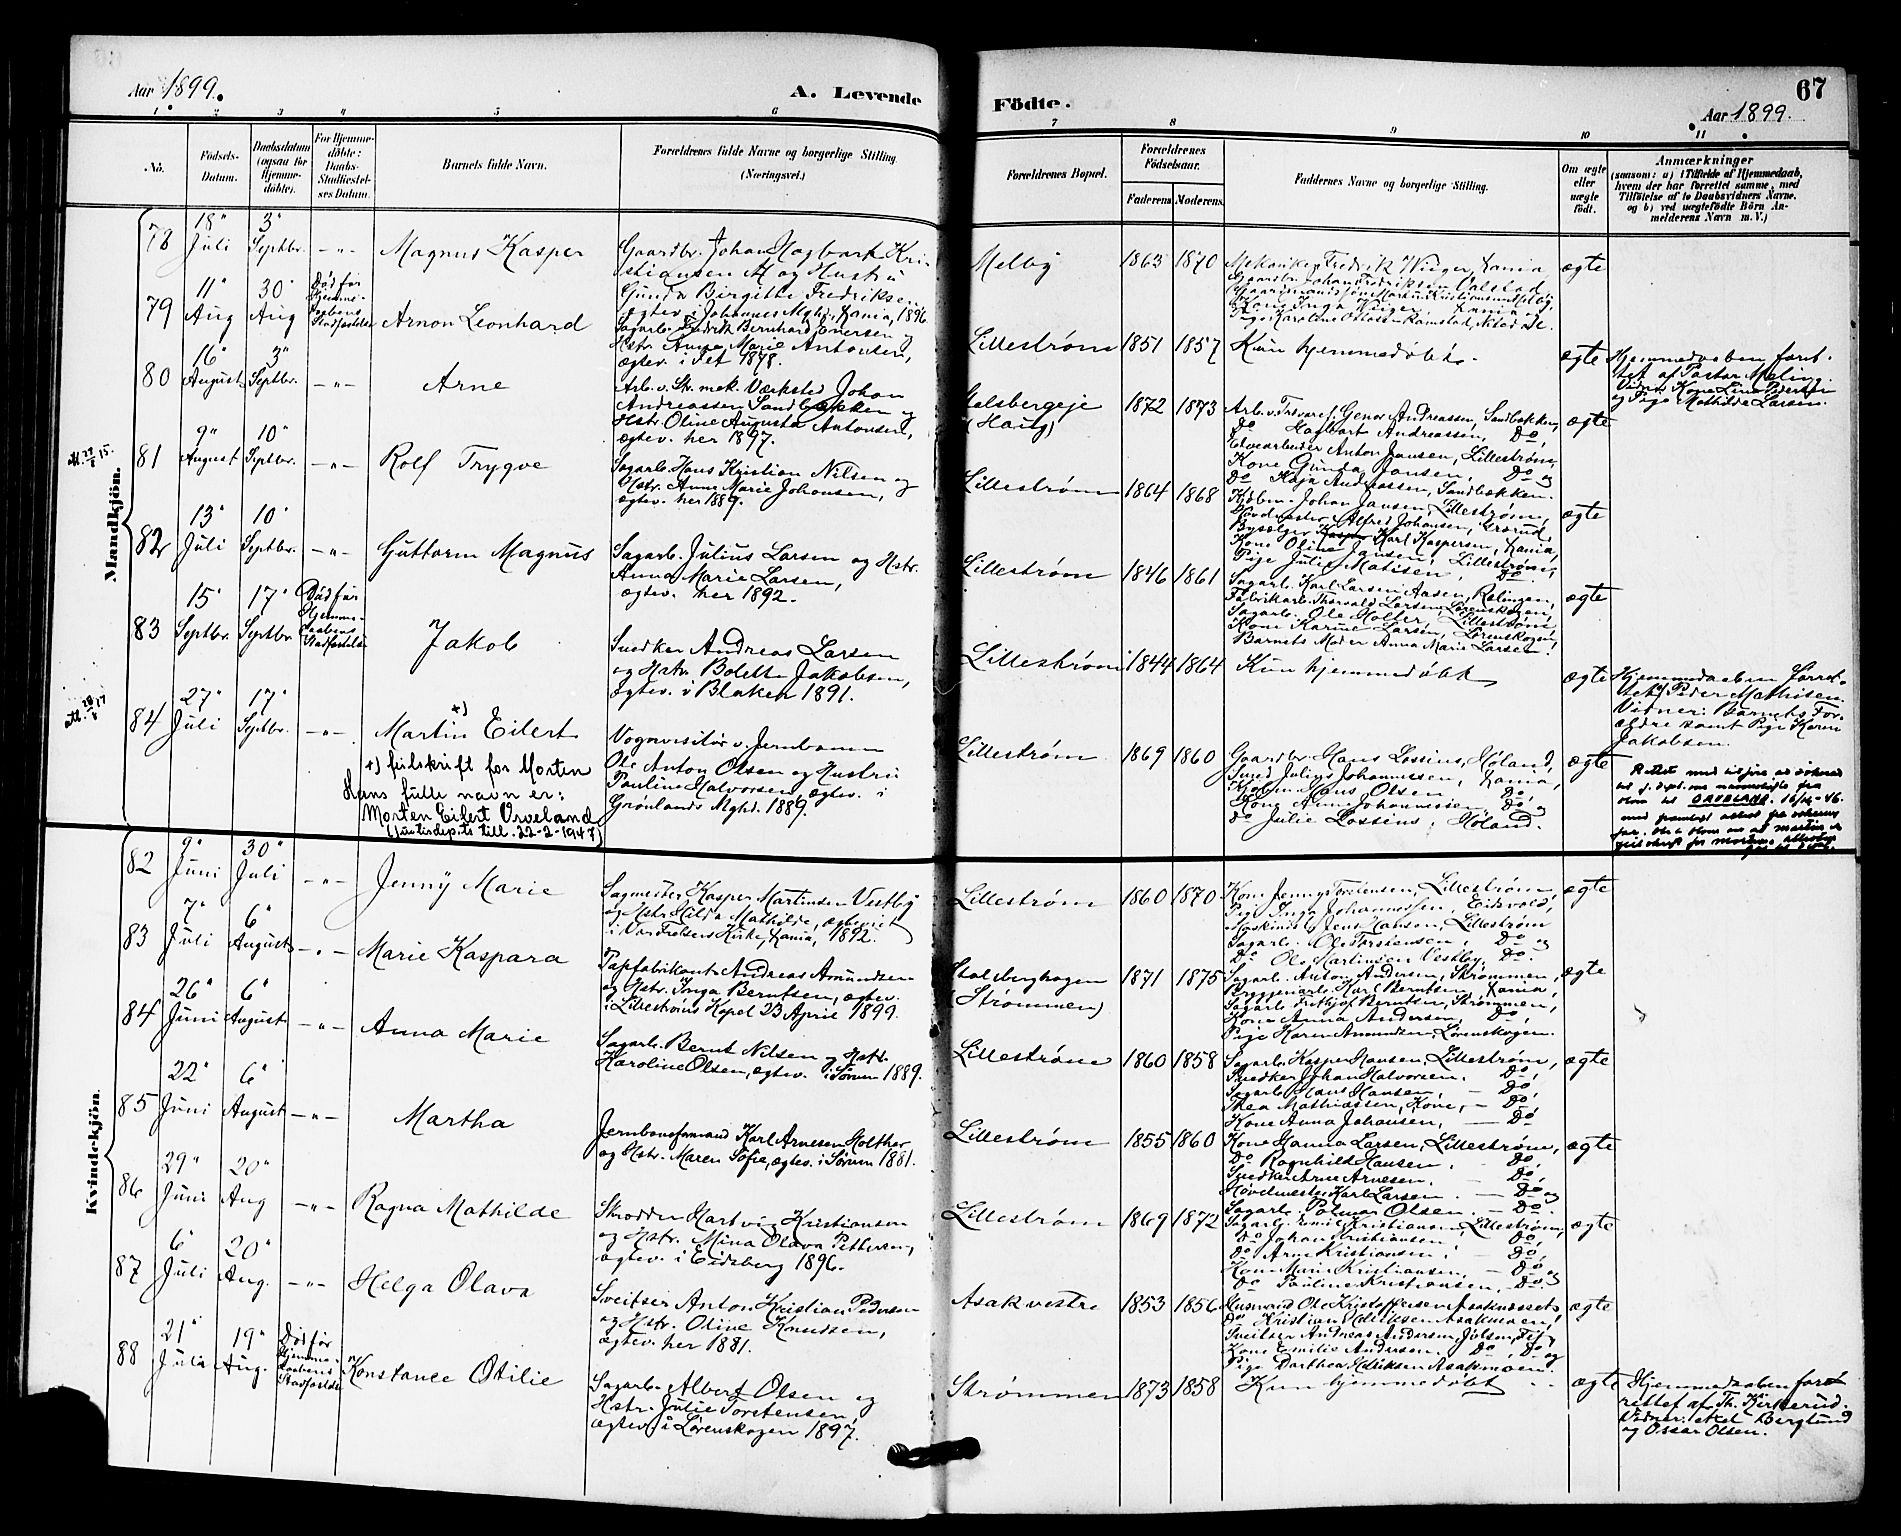 Aar 1899.
A. Levende
Födte.
67
Aar 1899.
1 2 3 4 5 6
7 8 9 10 11
No.
Födsels-Datum.
Daabsdatum (ogsaa for Hjemmedöbte).
For Hjemmedöbte: Daabs-Stadfæstelses Datum.
Barnets fulde Navn.
Forældrenes fulde Navne og borgerlige Stilling. (Næringsvei.)
Forældrenes Bopæl.
Forældrenes Födselsaar.
Faderens Moderens.
Faddernes Navne og borgerlige Stilling.
Om ægte eller uægte födt.
Anmærkninger
(saasom: a) i Tilfælde af Hjemmedaab,
hvem der har forrettet samme, med
Tilföielse af to Daabsvidners Navne,
og b) ved uægtefödte Börn An-
melderens Navn m. V.)
Mandkjön.
78
18' Juli
3' Septbr.
Magnus Kasper
Gaardbr. Johan Hagbart Kri-
stiansen og Hustru
Gunda Birgitte Fredriksen
ægtev. i Johannes Mghd., Xania, 1896.
Melby
1863 1870
Mekaniker Fredrik Winger, Xania,
ægte
79
11' Aug
30' Aug
Död før Hjemmedaabens Stadfæstelse
Arnon Leonhard
Sagarb. Fredrik Bernhard Iversen
Hstr. Anna Marie Antonsen,
ægtev. i Fet 1878.
Lillestrøm
1851 1857
Kun hjemmedøbt.
ægte
Hjemmedaaben forret-
tet af Pastor Meling
og Pige Mathilde Larsen.
80
16' August
3' Septbr.
Arne
Arb. v. Str. mek. Værksted Johan
Andreassen Sandbækken og
Hstr. Oline Augusta Antonsen,
ægtev. her 1897.
Stalsbergeje
(Haug)
1872 1873
Do Hagbart Andreassen, Do,
Elvearbeider Anton Jansen, Lillestrøm,
Kone Gunda Jansen, Do og
Do Kaja Andreassen, Sandbækken.
ægte
81
9' August
10' Septbr.
Rolf Trygve
Sagarb. Hans Kristian Nilsen og
Hstr. Anne Marie Johansen,
ægtev. her 1889.
Lillestrøm
1864 1868
Kjøbm. Johan Jansen, Lillestrøm,
Høvlmester Alfred Johansen,
Karl Kaspersen, Xania,
Kone Oline Jansen, Lillestrøm,
Pige Julie Matisen, Do.
ægte
82
13' Juli
10' Septbr.
Guttorm Magnus
Sagarb. Julius Larsen og Hstr.
Anna Marie Larsen,
ægtev. her 1892.
Lillestrøm
1846 1861
Sagarb. Karl Larsen Aasen, Rælingen,
Fabrikarb. Thorvald Larsen, Lørenskogen,
Sagarb. Ole Holter, Lillestrøm,
Kone Karine Larsen, Lørenskogen,
Barnets Moder Anna Marie Larsen.
ægte
83
15' Septbr.
17' Septbr.
Död før Hjemmedaabens Stadfæstelse
Jakob
Snedker Andreas Larsen
og Hstr. Bolette Jakobsen,
ægtev. i Blaker 1891.
Lillestrøm
1844 1864
Kun hjemmedøbt
ægte
Hjemmedaaben forret-
tet af Peder Mathisen.
Vidner: Barnets For-
ældre samt Pige Karen
Jakobsen.
84
27' Juli
17' Septbr.
Martin Eilert +)
+) feilskrift for Morten
Hans fulle navn er:
Morten Eilert Orveland
(Justisdep.ts till. 22-2-1947)
Vognvisitør v. Jernbanen
Ole Anton Olsen og Hustru
Pauline Halvorsen, ægtev. i
Grønlands Mghd. 1889.
Lillestrøm
1869 1860
Gaardbr. Hans Lossius, Høland,
Smed Julius Johannessen, Xania,
Kjøbm. Hans Olsen, Do,
Kone Anna Johannessen, Do og
Do Julie Lossius, Høland.
ægte
Kvindekjön.
82
9' Juni
30' Juli
Jenny Marie
Sagmester Kasper Martinsen Vestby
og Hstr. Hilda Mathilde, ægteviet
i Vor Frelsers Kirke, Xania, 1892.
Lillestrøm
1860 1870
Kone Jenny Torstensen, Lillestrøm,
Pige Inga Johannessen, Eidsvold,
Maskinist Jens Hansen, Lillestrøm
Sagarb. Ole Torstensen, Do og
Do Ole Martinsen Vestby, Do.
ægte
83
7' Juli
6' August
Marie Kaspara
Papfabrikant Andreas Amundsen
og Hstr. Inga Berntsen, ægtev.
i Lillestrøms Kapel 23 April 1899.
Stalsberghagen
(Strømmen)
1871 1875
Sagarb. Anton Andersen, Strømmen,
Bryggeriarb. Karl Berntsen, Xania,
Sagarb. Fridtjof Berntsen, Strømmen,
Kone Anna Andersen, Do,
Pige Karen Amundsen, Lørenskogen.
ægte
84
26' Juni
6' August
Anna Marie
Sagarb. Bernt Nilsen og Hstr.
Karoline Olsen, ægtev. i Sørum 1889.
Lillestrøm
1860 1858
Sagarb. Kasper Hansen, Lillestrøm,
Snedker Johan Halvorsen, Do,
Sagarb. Hans Hansen, - Do,
Thea Mathiassen, Kone, - Do,
Kone Anna Johansen, - Do
ægte
85
22' Juni
6' August
Martha
Jernbaneformand Karl Arnesen Holther
og Hstr. Maren Sofie, ægtev. i Sørum 1881.
Lillestrøm
1855 1860
Kone Hanna Larsen, Lillestrøm,
Do Ragnhild Hansen, - Do,
Snedker Arne Arnesen, - Do,
Høvelmester Karl Larsen, - Do og
Sagarb. Palmar Olsen, - Do.
ægte
86
29' Juni
20' Aug
Ragna Mathilde
Skrædder Hartvig Kristiansen
og Hstr. Mina Olava Pettersen,
ægtev. i Eidsberg 1896.
Lillestrøm
1869 1872
Sagarb. Emil Kristiansen, Lillestrøm,
Do Johan Kristiansen, Do,
Do Arne Kristiansen, - Do,
Kone Marie Kristiansen, - Do og
Do Pauline Kristiansen, Do.
ægte
87
6' Juli
20' Aug.
Helga Olava
Sveitser Anton Kristian Pedersen
og Hstr. Oline Knudsen,
ægtev. her 1881.
Asak vestre
1853 1856
Husmand Ole Kristoffersen
Sveitser Andreas Andersen,
Kone Emilie Andersen, Do, Do og
ægte
88
21' Juli
19' Aug.
Död før Hjemmedaabens Stadfæstelse
Konstance Otilie
Sagarb. Albert Olsen og
Hstr. Julie Torstensen,
ægtev. i Lørenskogen 1897.
Strømmen
1873 1858
Kun hjemmedøbt
ægte
Hjemmedaaben for-
rettet af Th. Kirkerud.
Vidner: Axel Berglund
og Oscar Olsen.